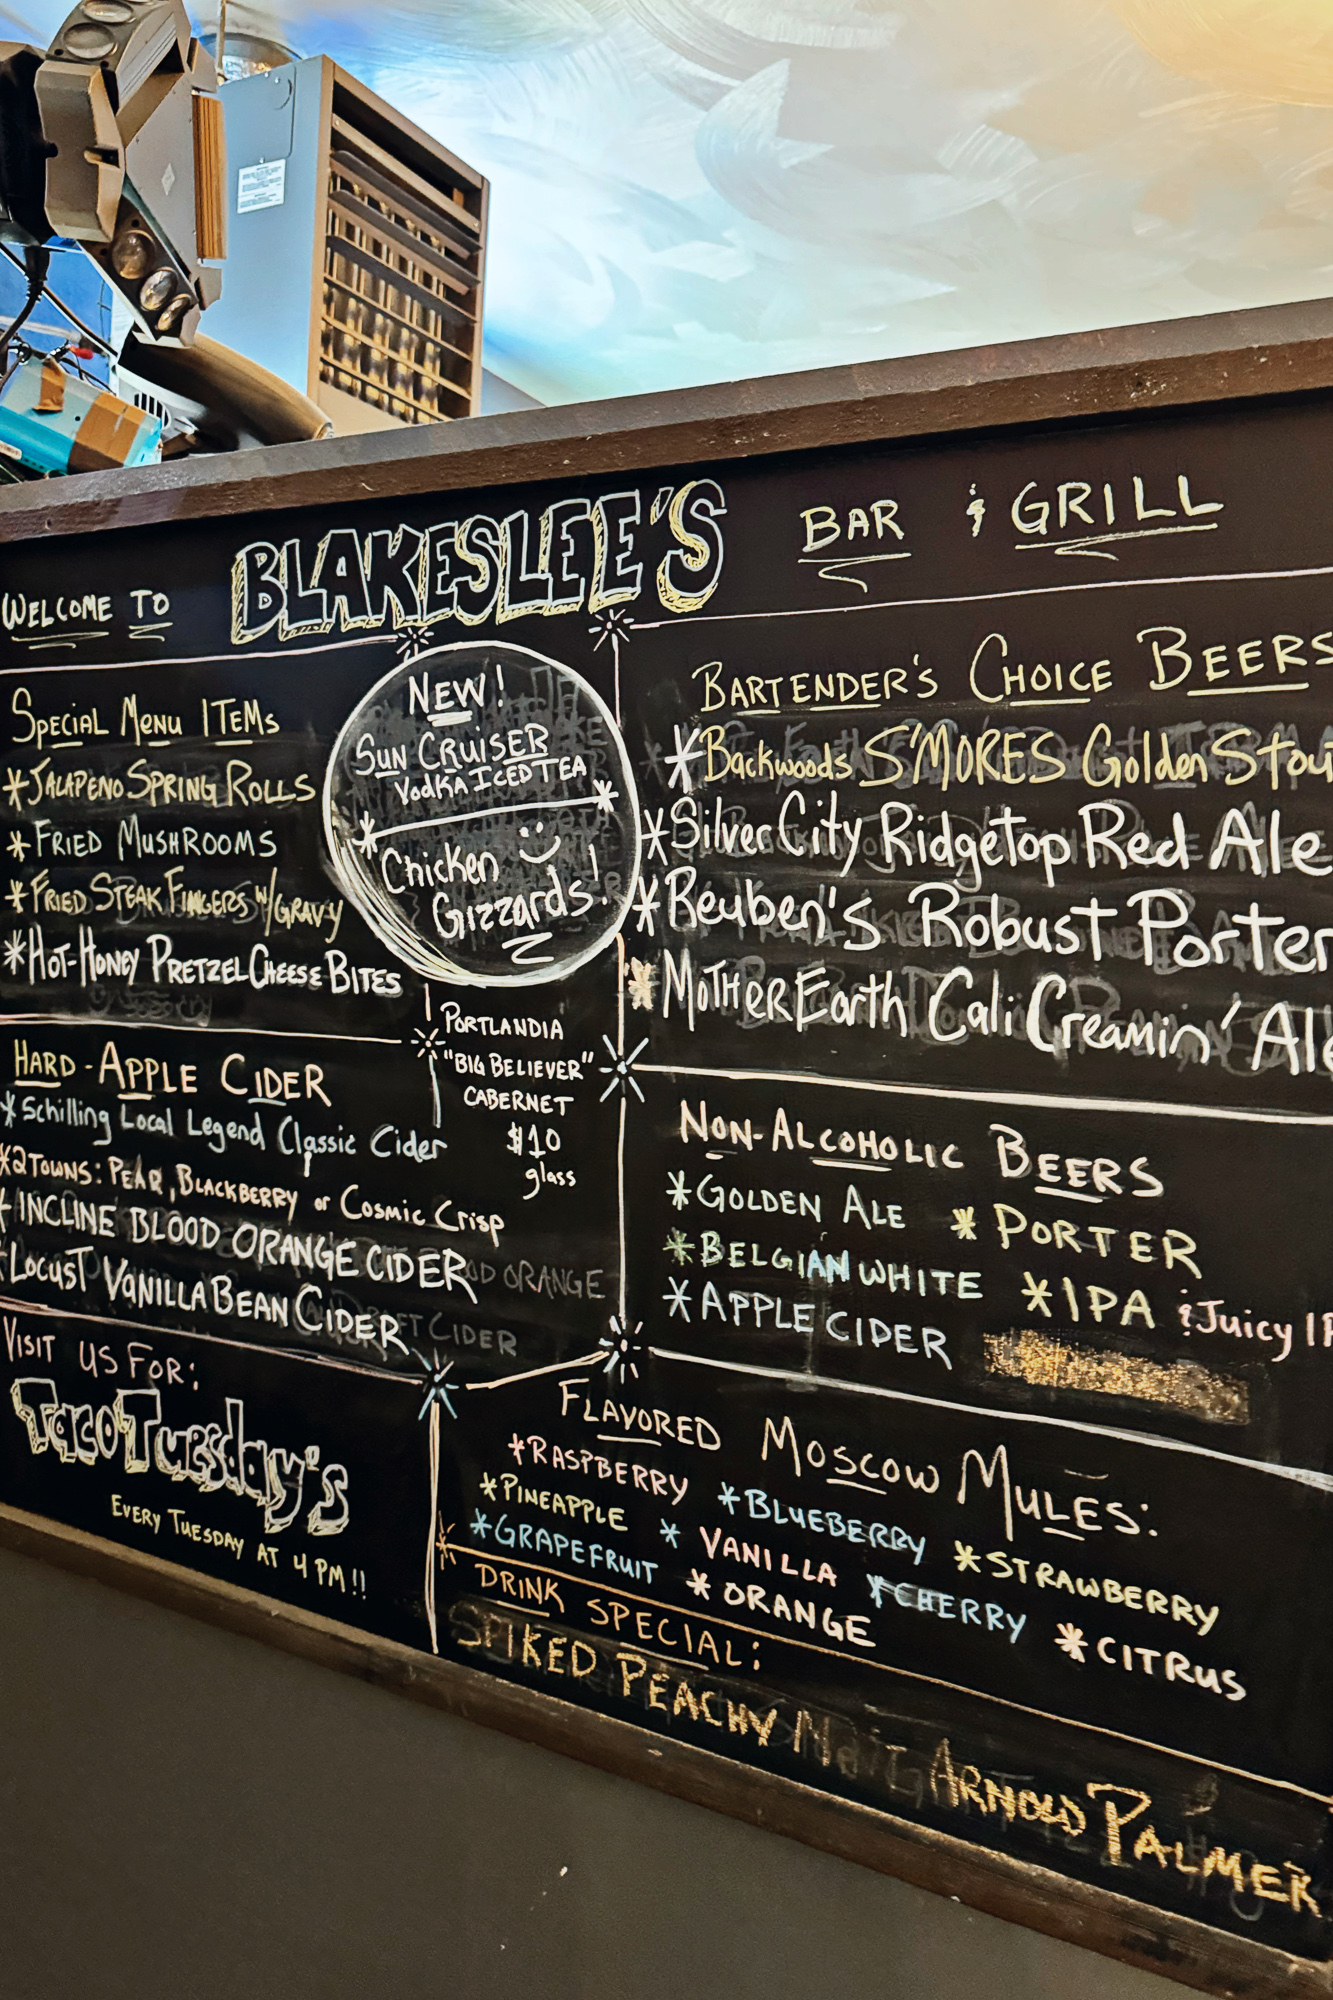 WELCOME TO BLAKESLEE'S BAR & GRILL
SPECIAL MENU ITEMS
*JALAPENO SPRING ROLLS
*FRIED MUSHROOMS
*FRIED STEAK FINGERS W/GRAVY
*HOT-HONEY PRETZEL CHEESE BITES
NEW!
SUN CRUISER
VODKA ICED TEA
Chicken
Gizzards!
PORTLANDIA
"BIG BELIEVER"
CABERNET
$10
glass
BARTENDER'S CHOICE BEERS
*Backwoods S'MORES Golden Stou
*Silver City Ridgetop Red Ale
*Reuben's Robust Porter
*Mother Earth Cali Creamin' Ale
HARD-APPLE CIDER
*Schilling Local Legend Classic Cider
*2TOWNS: PEAR, BLACKBERRY or COSMIC CRISP
*INCLINE BLOOD ORANGE CIDER
*LOCUST VANILLA BEAN CIDER
NON-ALCOHOLIC BEERS
*GOLDEN ALE *PORTER
*BELGIAN WHITE *IPA & Juicy IP
*APPLE CIDER
VISIT US FOR:
Taco Tuesday's
EVERY TUESDAY AT 4 PM!!
FLAVORED MOSCOW MULES:
*RASPBERRY *BLUEBERRY *STRAWBERRY
*PINEAPPLE *VANILLA *CHERRY *CITRUS
*GRAPEFRUIT *ORANGE
DRINK SPECIAL:
SPIKED PEACHY ARNOLD PALMER